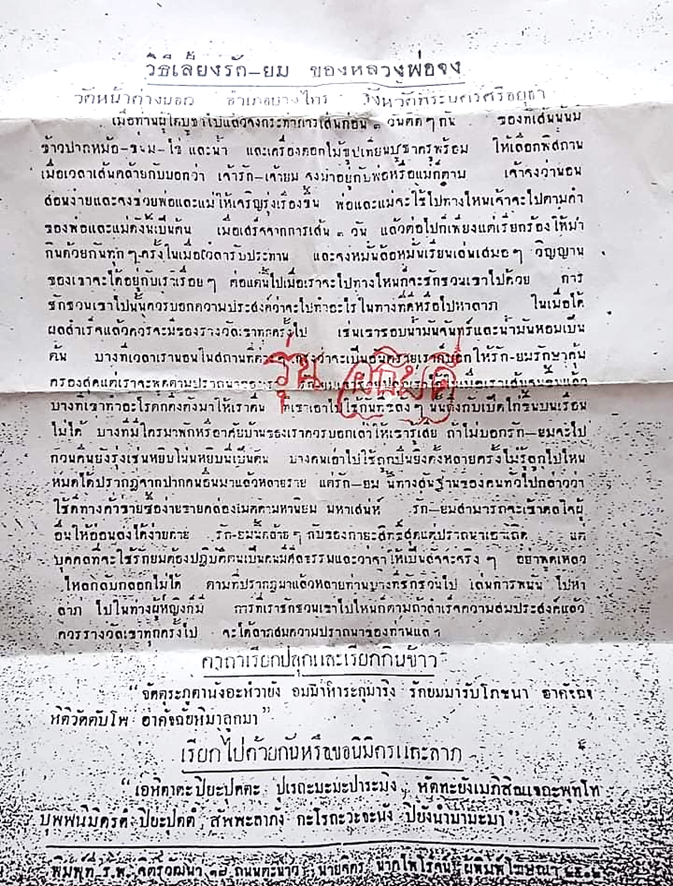 วิธีเลี้ยงรัก-ยม ของหลวงพ่อจง
วัดหน้าต่างนอก อำเภอบางไทร จังหวัดพระนครศรีอยุธยา
เมื่อท่านผู้ใดบูชาไปแล้วจงกระทำการเส้นก่อน ๓ วันติดๆกัน ของที่เส้นนั้นมี
ข้าวปากหม้อ-ขนม-ไข่ และน้ำ และเครื่องดอกไม้ธูปเทียนบูชาครูพร้อม ให้เลือกพิสถาน
เมื่อเวลาเส้นคล้ายกับบอกว่า เจ้ารัก-เจ้ายม จงมาอยู่กับพ่อหรือแม่ก็ตาม เจ้าจงว่านอน
สอนง่ายและจงรวยพ่อและแม่ให้เจริญรุ่งเรืองขึ้น พ่อและแม่จะใช้ไปทางไหนเจ้าจะไปตามคำ
ของพ่อและแม่ดังนี้เป็นต้น เมื่อเสร็จจากการเส้น ๓ วัน แล้วต่อไปก็เพียงแต่เรียกร้องให้มา
กินด้วยกันทุกๆครั้งในเมื่อเวลารับประทาน และจงหมั่นเรียนเส้นเสมอๆ วิญญาน
ของเราจะได้อยู่กับเราเรื่อยๆ ต่อแต่นี้ไปเมื่อเราจะไปทางไหนก็จงชักชวนเขาไปด้วย การ
ชักชวนเขาไปนั้นควรบอกความประสงค์ว่าจะไปทำอะไรในทางที่ดีหรือไปหาลาภ ในเมื่อได้
ผลสำเร็จแล้วควรจะมีของรางวัลเขาทุกครั้งไป เช่นเขาชอบน้ำมันจันทร์และน้ำมันหอมเป็น
ต้น บางทีเวลาเรานอนในสถานที่ ว่าจะเป็นอันตรายเราก็บอกให้รัก-ยมรักษาคุ้ม
รุ่น เศรษฐี
ครองสุดแต่เราจะพูดตามปรารถนาของเรา
บางทีเราทำอะไรตกตึงตังมาให้เราตื่น
ไม่ได้ บางทีมีใครมาพักหรืออาศัยบ้านของเราควรบอกเล่าให้เขารู้เสีย ถ้าไม่บอกรัก-ยมจะไป
กวนคืนยังรุ่งเช่นหยิบโน่นหยิบนี่เป็นต้น บางคนเอาไปใช้ถูกปืนยิงตั้งหลายครั้งไม่รู้ถูกไปไหน
หมดได้ปรากฏจากปากคนอื่นมาแล้วหลายราย แต่รัก-ยม นี้ทางสันฐานของคนทั่วไปกล่าวว่า
ใช้ดีทางค้าขายซื้อง่ายขายคล่องเมตตามหานิยม มหาเสน่ห์ รัก-ยมสามารถจะเข้าดลใจผู้
อื่นให้อ่อนลงได้ง่ายดาย รัก-ยมนี้คล้ายๆกับของกายะสิทธิ์สุดแต่ปรารถนาเอานี้ถิด แต่
บุคคลที่จะใช้รักยมต้องปฏิบัติตนเป็นคนมีศีลธรรมและวาจาให้เป็นสัจจะจริงๆ อย่าพูดเหลว
ไหลกลับกลอกไม่ได้ ตามที่ปรากฏมาแล้วหลายท่านบางทีชักชวนไป เล่นการพนัน ไปหา
ลาภ ไปในทางผู้หญิงก็มี การที่เราชักชวนเขาไปไหนก็ตามถ้าสำเร็จความสมประสงค์แล้ว
ควรรางวัลเขาทุกครั้งไป จะได้ลาภสมความปรารถนาของท่านแลฯ
คาถาเรียกปลุกและเรียกกินข้าว
“จิตตุระภตานังอะหังวายัง อมมหาหาระกุมาริง รักยมมารับโภชนา อาคัจฉ
หติวัตตัปโพ อาคัจฉัยหิมาลูกมา”
เรียกไปด้วยกันหรือขอนิมิตรและลาภ
“เอหิตาตะปิยะปุตตะ ปูเรถะมะมะปาระมิง, หัดทะยังเมภิสิณเจถะพุทโท
บุพพนิมิตรตํ ปิยะปุตตํ สัพพะลาภัง กะโรถะวะจะนัง ปิยังนำมามะมา”
พิมพ์ที่ ร.พ. จิตรวัฒนา ๑๗ ถนนตะนาว นายจิตร นาคไพโรจน์ ผู้พิมพ์โฆษณา